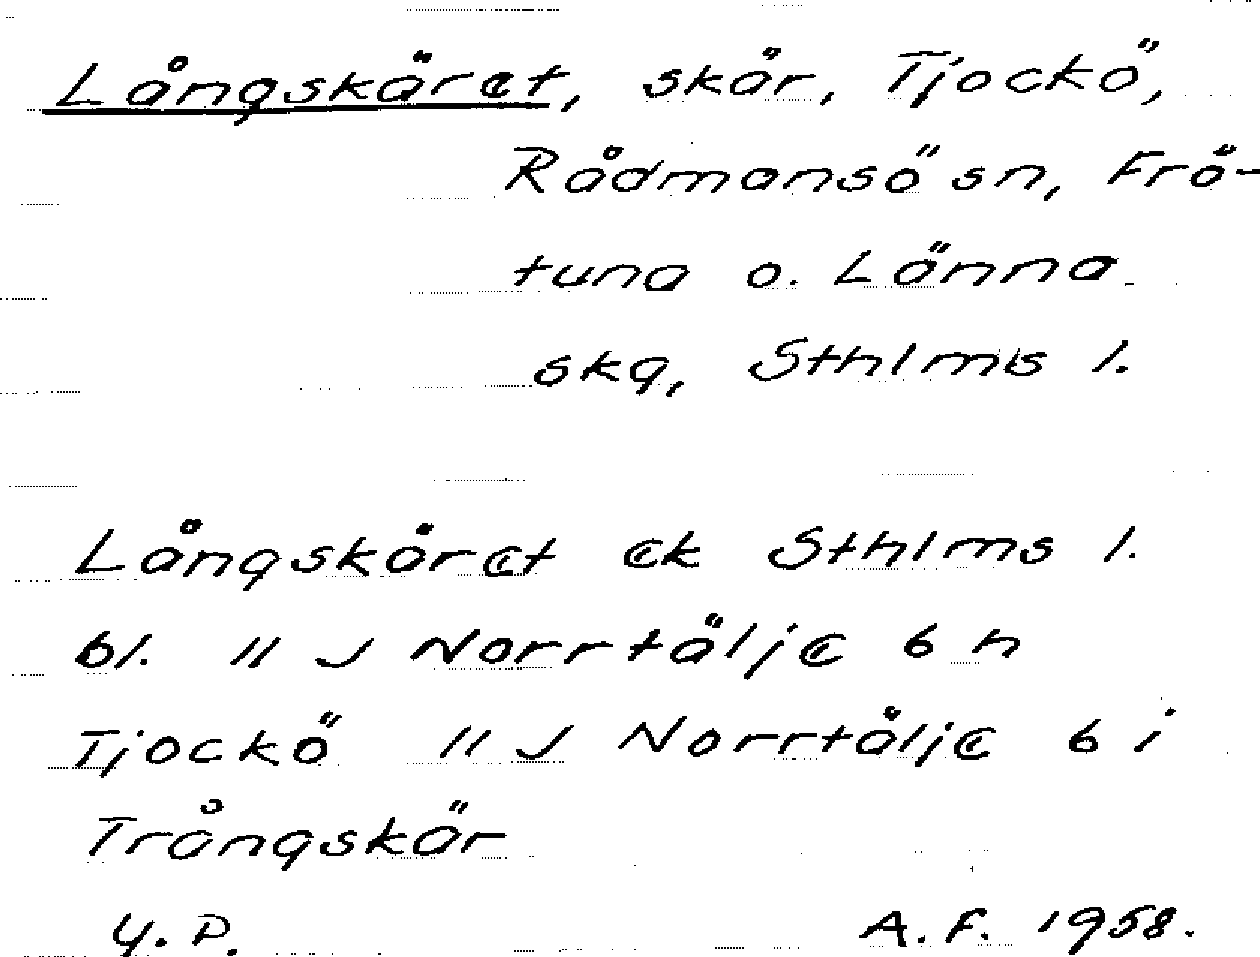 Långskäret, skär, Tjockö,
Rådmansö sn, Frö-
tuna o. Länna
skg, Sthlms l.
Långskäret ek Sthlms l.
bl. 11 J Norrtälje 6 h
Tjockö 11 J Norrtälje 6 i
Trångskär
Y. P. A. F. 1958.